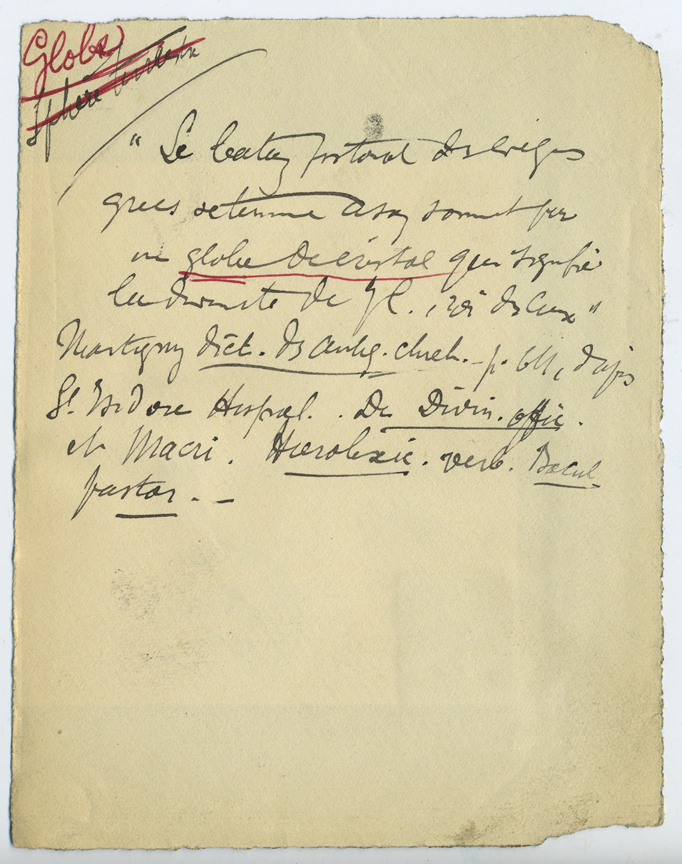 Globe
Sphère
" Le baton pastoral des évêques
grecs se termine à son sommet par
un globe de cristal qui signifie
la divinité de J C.
Martigny dict. des antiq. chret. - p. d'après
St Isidore Hispal. . De Divin. offic.
et Macri. Hierolexic. verb. Bacul.
pastor. -